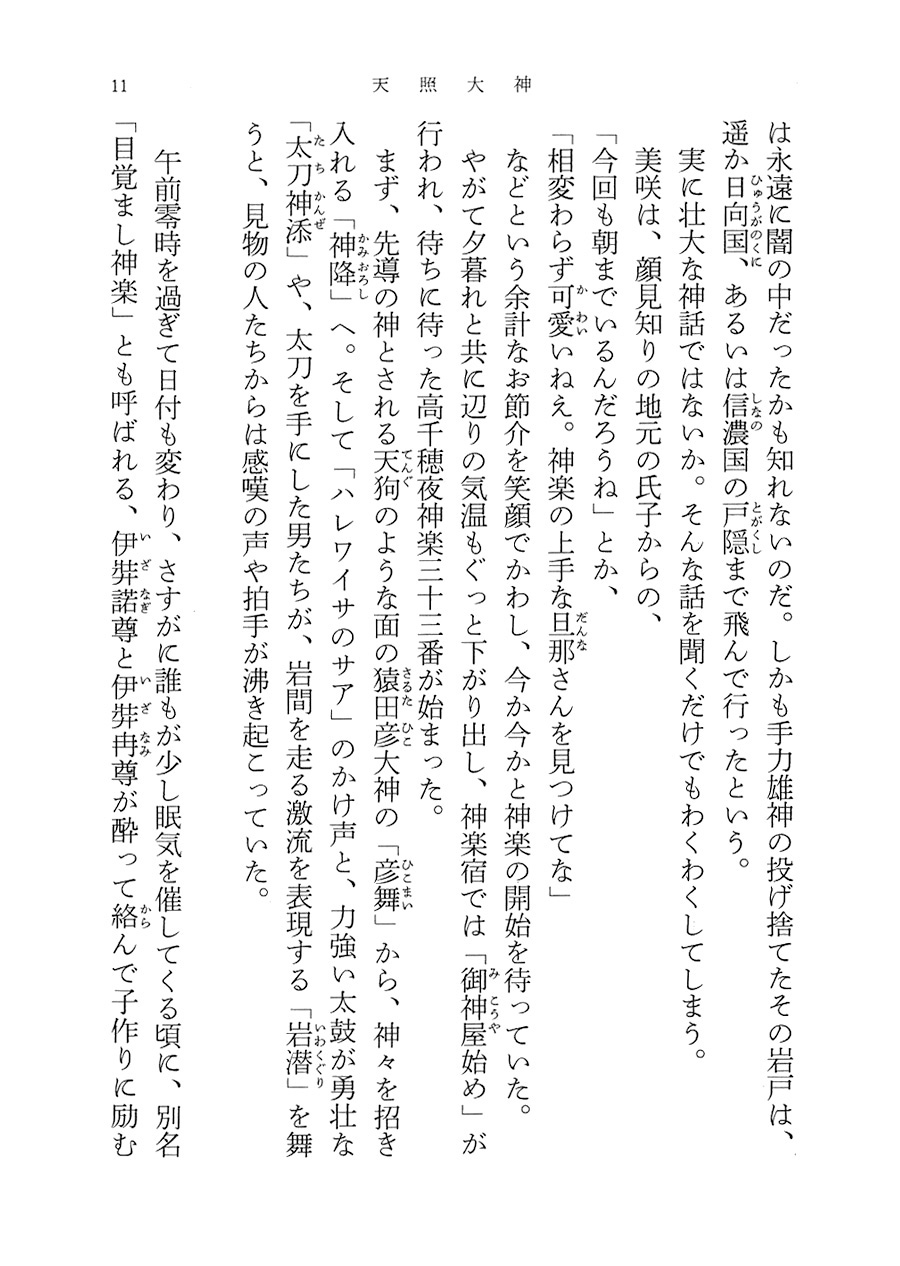 11
天照大神
は永遠に闇の中だったかも知れないのだ。しかも手力雄神の投げ捨てたその岩戸は、
遥か日向国、あるいは信濃国の戸隠まで飛んで行ったという。
実に壮大な神話ではないか。そんな話を聞くだけでもわくわくしてしまう。
美咲は、顔見知りの地元の氏子からの、
「今回も朝までいるんだろうね」とか、
「相変わらず可愛いねえ。神楽の上手な旦那さんを見つけてな」
などという余計なお節介を笑顔でかわし、今か今かと神楽の開始を待っていた。
やがて夕暮れと共に辺りの気温もぐっと下がり出し、神楽宿では「御神屋始め」が
行われ、待ちに待った高千穂夜神楽三十三番が始まった。
まず、先導の神とされる天狗のような面の猿田彦大神の「彦舞」から、神々を招き
入れる「神降」へ。そして「ハレワイサのサア」のかけ声と、力強い太鼓が勇壮な
「太刀神添」や、太刀を手にした男たちが、岩間を走る激流を表現する「岩潜」を舞
うと、見物の人たちからは感嘆の声や拍手が沸き起こっていた。
午前零時を過ぎて日付も変わり、さすがに誰もが少し眠気を催してくる頃に、別名
「目覚まし神楽」とも呼ばれる、伊弉諾尊と伊弉冉尊が酔って絡んで子作りに励む